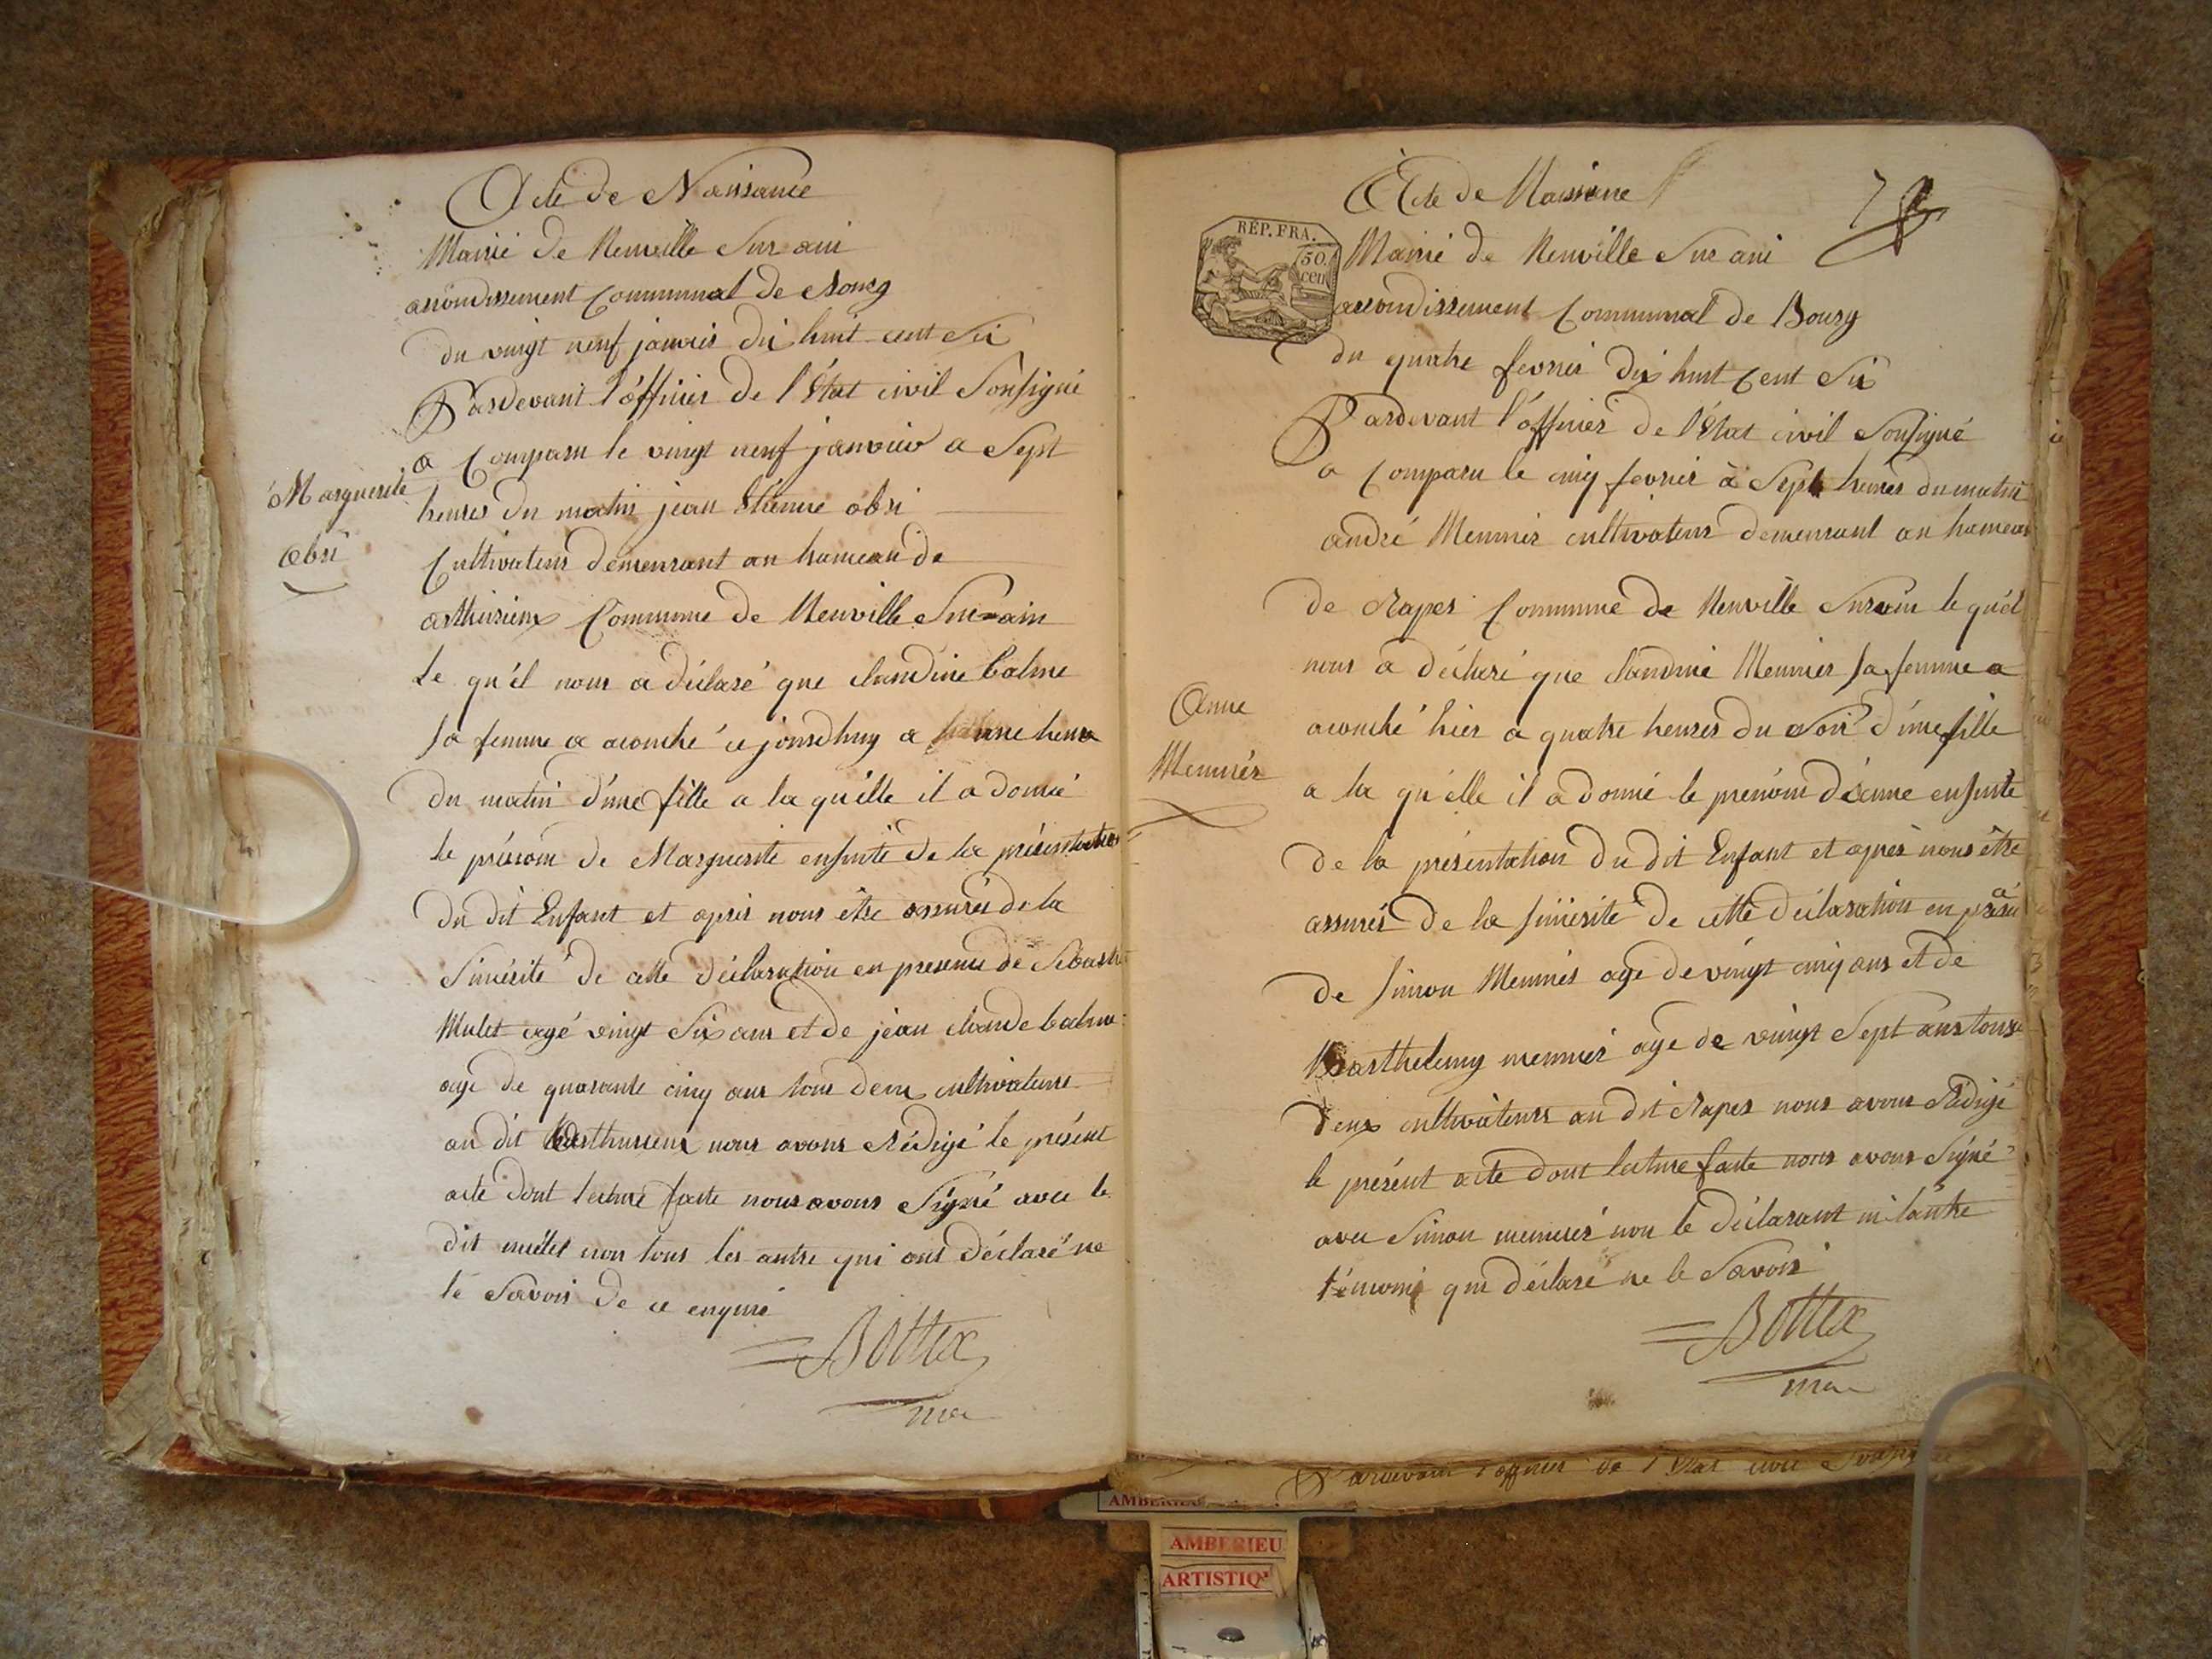 Acte de Naissance
Mairie de Neuville Sur ain
arrondissement Communal de Bourg
du vingt neuf janvier dix huit cent Six
Pardevant l'officier de l'état civil Soussigné
a Comparu le vingt neuf janvier a Sept
Marguerite
obri
heures du matin jean Etienne obri
Cultivateur demeurant au hameau de
arthurieux Commune de Neuville Sur ain
Le qu'él nous a déclaré que claudine balme
Sa femme a acouché ce jourdhuy a heure
du matin d'une fille a la qu'élle il a donné
le prénom de Marguerite ensuite de la présentation
du dit Enfant et après nous être assurés de la
Sincérité de cette déclaration en présence de Sébastien
Mulet agé vingt Six ans et de jean claude balme
agé de quarante cinq ans tous deux cultivateurs
au dit arthurieux nous avons Rédigé le présent
acte dont lecture faite nous avons Signé avec le
dit mulet non tous les autre qui ont déclaré ne
le Savoir de ce enquis
Bottex
Acte de Naissance
7
RÉP. FRA.
50.
cen
Mairie de Neuville Sur ain
arrondissement Communal de Bourg
du quatre fevrier dix huit Cent Six
Pardevant l'officier de l'état civil Soussigné
a Comparu le cinq fevrier à Sept heures du matin
andré Meunier cultivateur demeurant au hameau
de Rapes Commune de Neuville Sur ain le qu'él
nous a déclaré que Claudine Meunier Sa femme a
Anne
Meunier
acouché hier a quatre heures du Soir d'une fille
a la qu'élle il a donné le prénom d'anne ensuite
de la présentation du dit Enfant et après nous être
assurés de la Sincérité de cette déclaration en présa
de Simon Meunier agé de vingt cinq ans et de
Barthelemy meunier agé de vingt Sept ans tous
deux cultivateurs au dit Rapes nous avons Rédigé
le présent acte dont lecture faite nous avons Signé
avec Simon meunier non le déclarant ni l'autre
témoin qui déclaré ne le Savoir
Bottex
Pardevant l'officier de l'Etat civil
AMBERIEU
AMBERIEU
ARTISTIQ